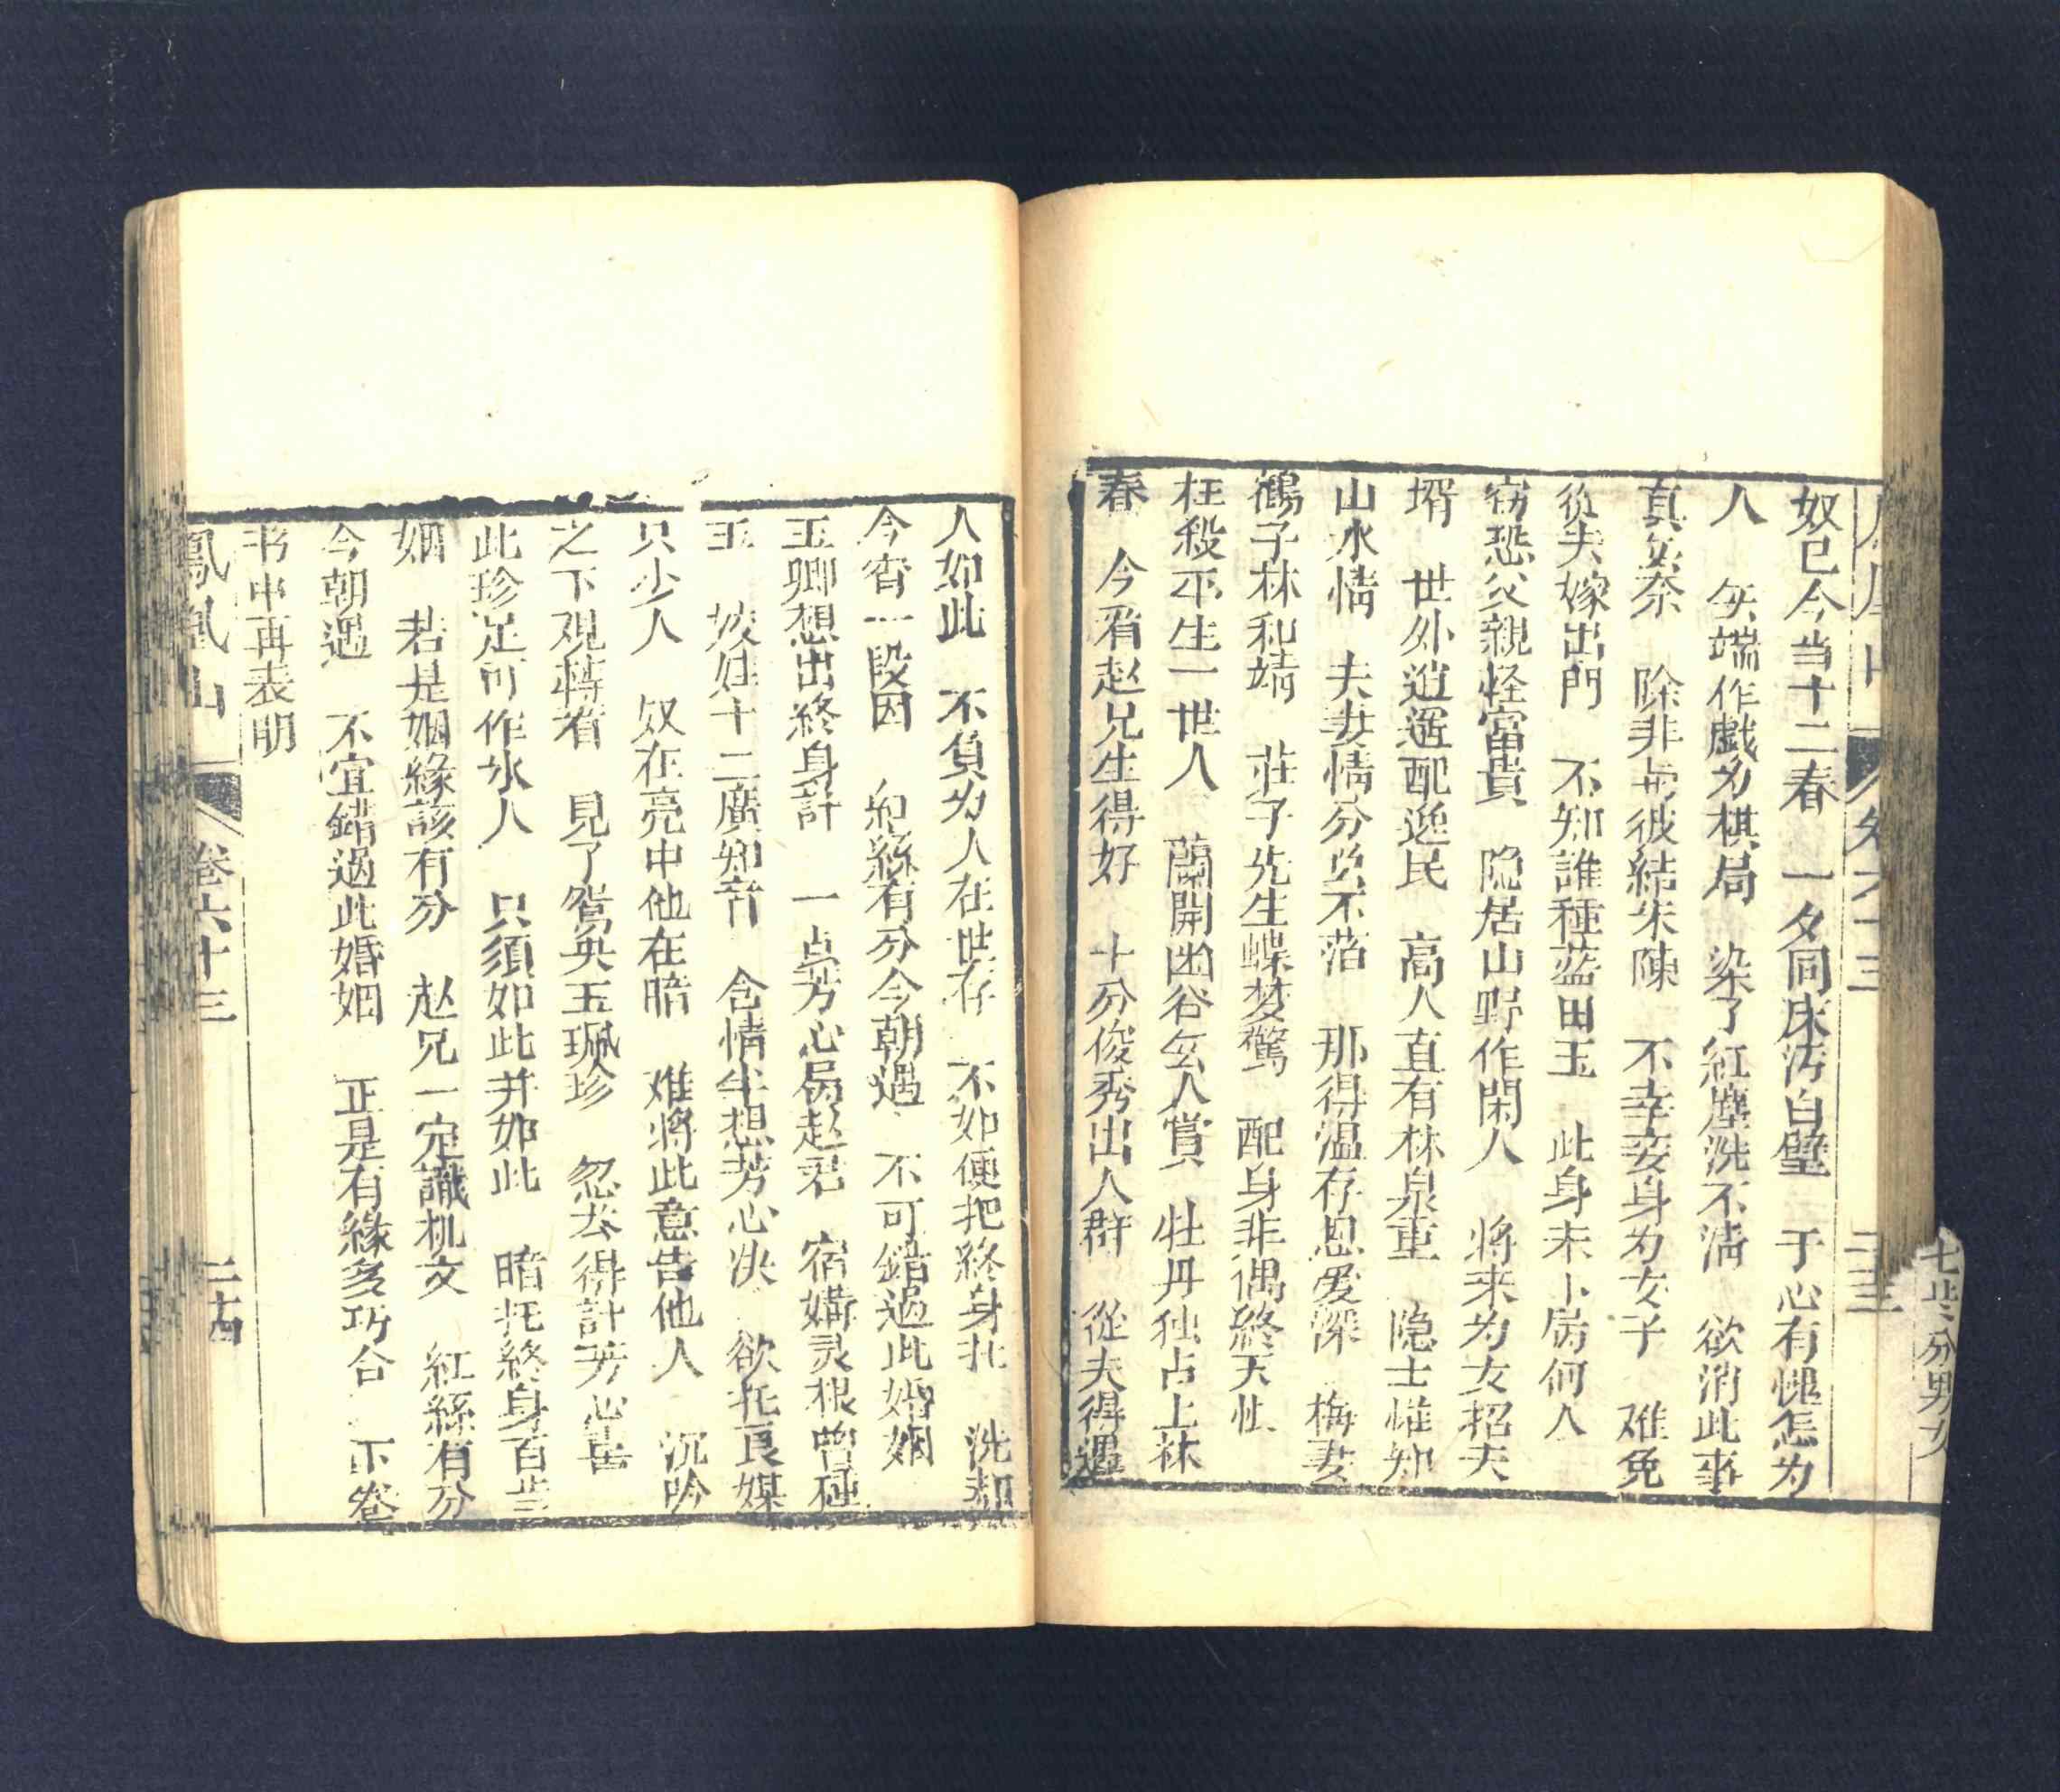 七岁分男女
卷六十三
二十三
奴已今当十二春 一夕同床汚白璧 于心有愧怎为
人 無端作戯为棋局 染了紅塵洗不清 欲消此事
真無奈 除非与彼結朱陳 不幸妾身为女子 难免
從夫嫁出門 不知誰種蓝田玉 此身未卜属何人
窃恐父親怪富貴 隐居山野作閑人 将来为女招夫
壻 世外逍遥配逸民 高人直有林泉重 隐士惟知
山水情 夫妻情分总不落 那得温存恩爱深 梅妻
鶴子林和靖 莊子先生蝶梦驚 配身非偶終天恨
枉殺平生一世人 蘭開幽谷無人賞 牡丹独占上林
春 今宵赵兄生得好 十分俊秀出人群 從夫得遇
人如此 不負为人在世存 不如便把終身托 洗却
今宵一段因 紅絲有分今朝遇 不可錯過此婚姻
玉卿想出終身計 一点芳心属赵君 宿媾灵根曽種
玉 姣娃十二廣知音 含情半想芳心决 欲托良媒
只少人 奴在亮中他在暗 难將此意告他人 沉吟
之下观蒋者 見了鸳央玉珮珍 忽然得計芳心喜
此珍足可作氷人 只須如此并如此 暗托終身百岁
姻 若是姻緣該有分 赵兄一定識机文 紅絲有分
今朝遇 不宜錯過此婚姻 正是有緣多巧合 下卷
书中再表明
鳳凰山
卷六十三
二十四